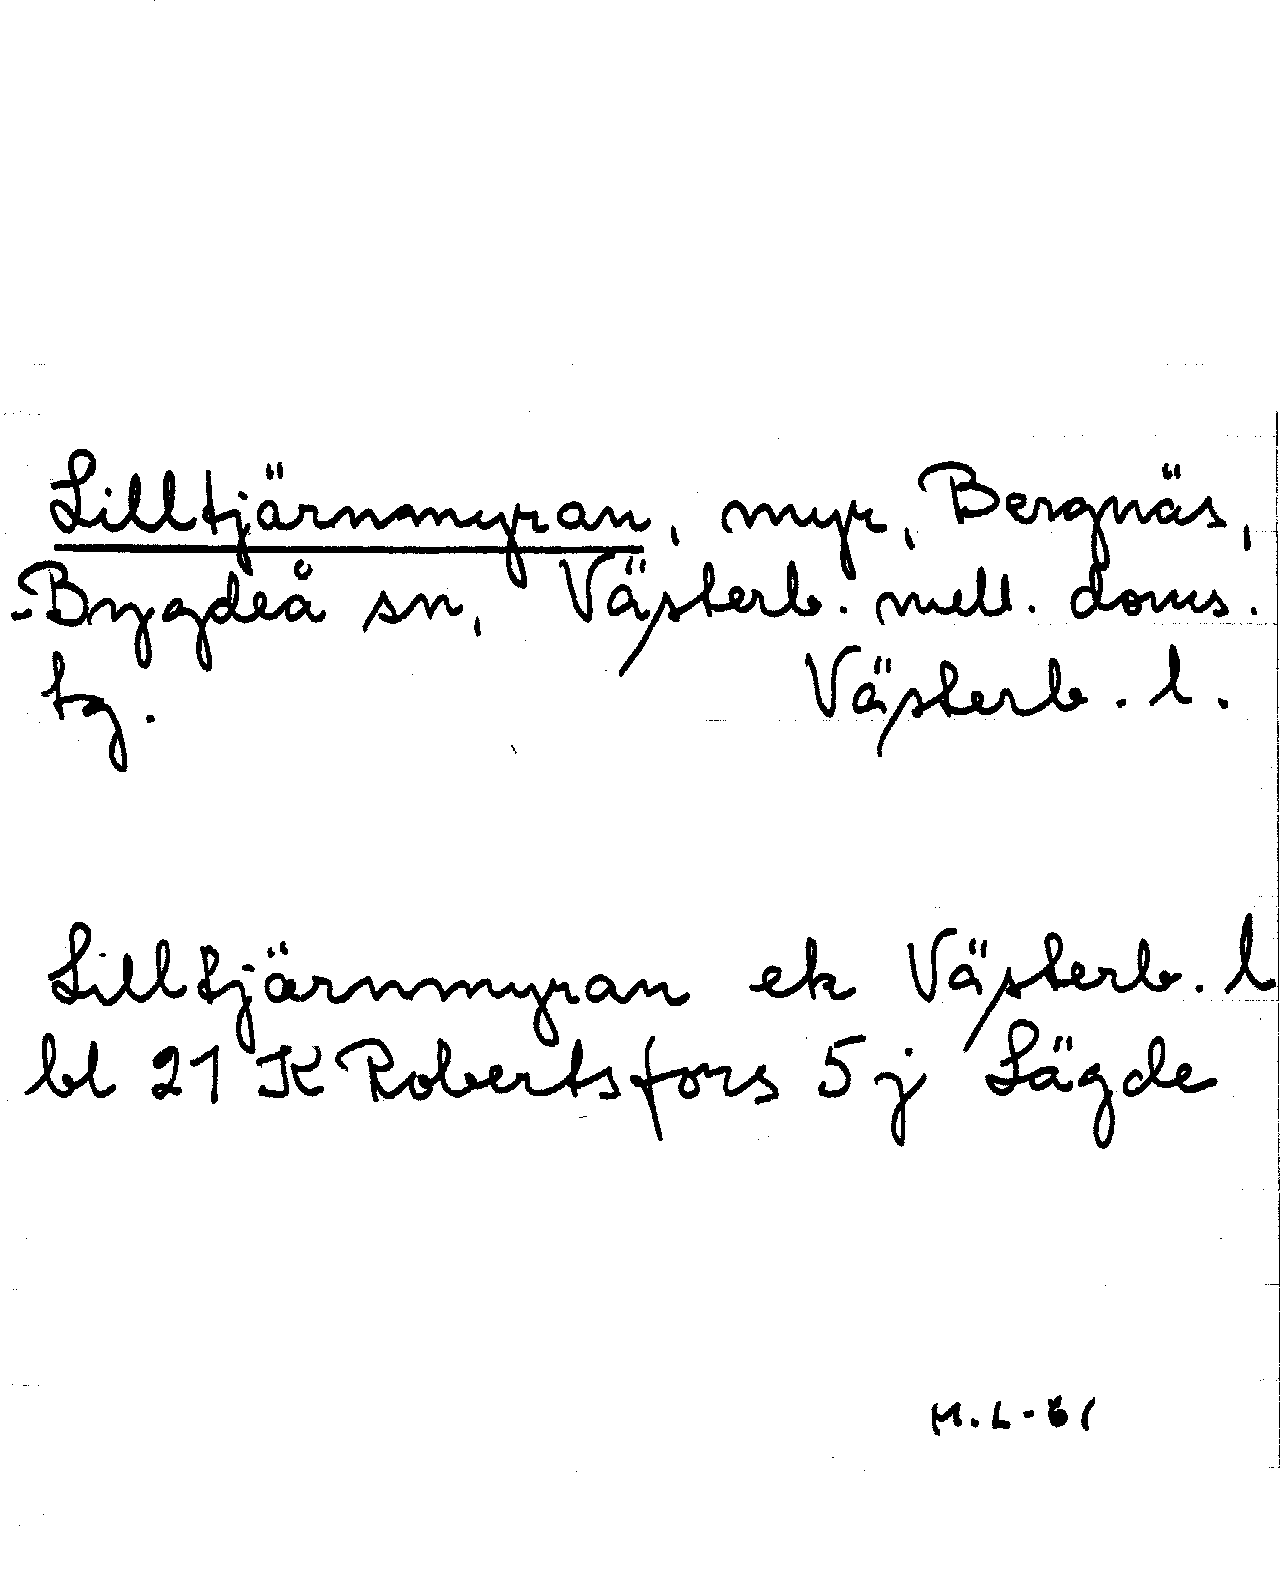 Lilltjärnmyran, myr, Bergnäs,
Bygdeå sn, Västerb. mell. doms.
tg. Västerb. l.
Lilltjärnmyran ek Västerb. l
bl 21 K Robertsfors 5 j Lägde
H. L-61